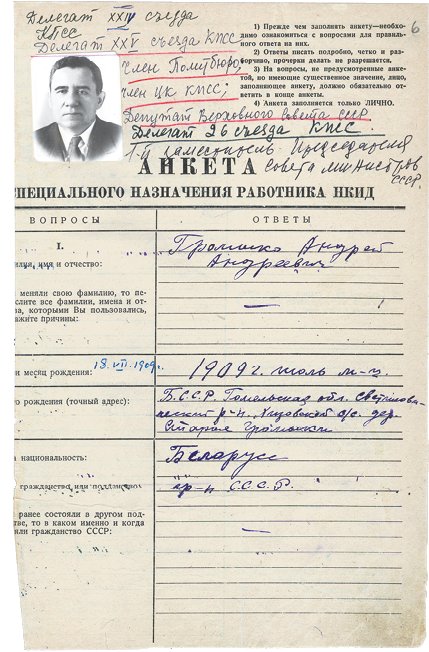 Делегат XXIV съезда
КПСС
Делегат XXV съезда КПСС
Член Политбюро,
член ЦК КПСС;
Депутат Верховного Совета СССР
Делегат 26 съезда КПСС.
1-й заместитель Председателя
Совета министров
СССР.
6
1) Прежде чем заполнять анкету—необхо-
димо ознакомиться с вопросами для правиль-
ного ответа на них.
2) Ответы писать подробно, четко и раз-
борчиво, прочерки делать не разрешается.
3) На вопросы, не предусмотренные анке-
той, но имеющие существенное значение, лицо,
заполняющее анкету, должно обязательно от-
ветить в конце анкеты.
4) Анкета заполняется только ЛИЧНО.
АНКЕТА
СПЕЦИАЛЬНОГО НАЗНАЧЕНИЯ РАБОТНИКА НКИД
ВОПРОСЫ
ОТВЕТЫ
I.
имя и отчество:
Громыко Андрей
Андреевич
меняли свою фамилию, то пе-
слите все фамилии, имена и от-
ва, которыми Вы пользовались,
кажите причины:
—
и месяц рождения:
18.VII.1909г.
1909 г. июль м-ц
рождения (точный адрес):
Б.С.С.Р. Гомельская обл. Светилови-
ческий р-н, с/с. дер.
Старые Громыки
национальность:
Белорусс
гр-н С.С.С.Р.
ранее состояли в другом под-
стве, то в каком именно и когда
яли гражданство СССР:
—